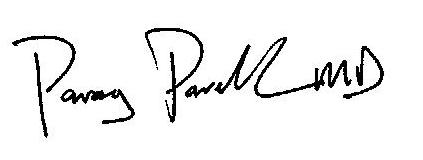 Parag Parekh MD